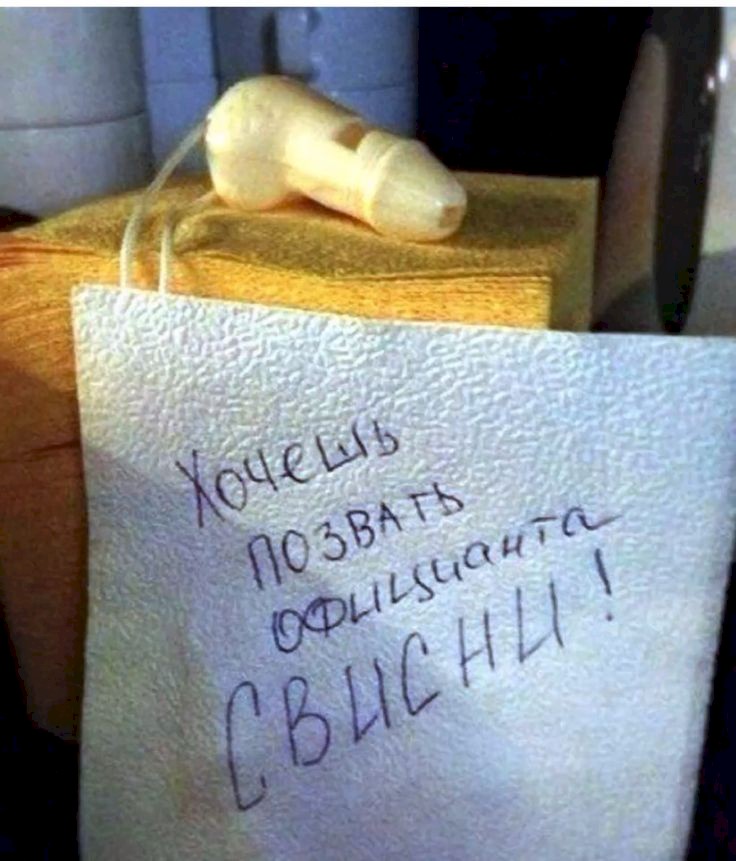 Хочешь
позвать
официанта
СВИСНИ!